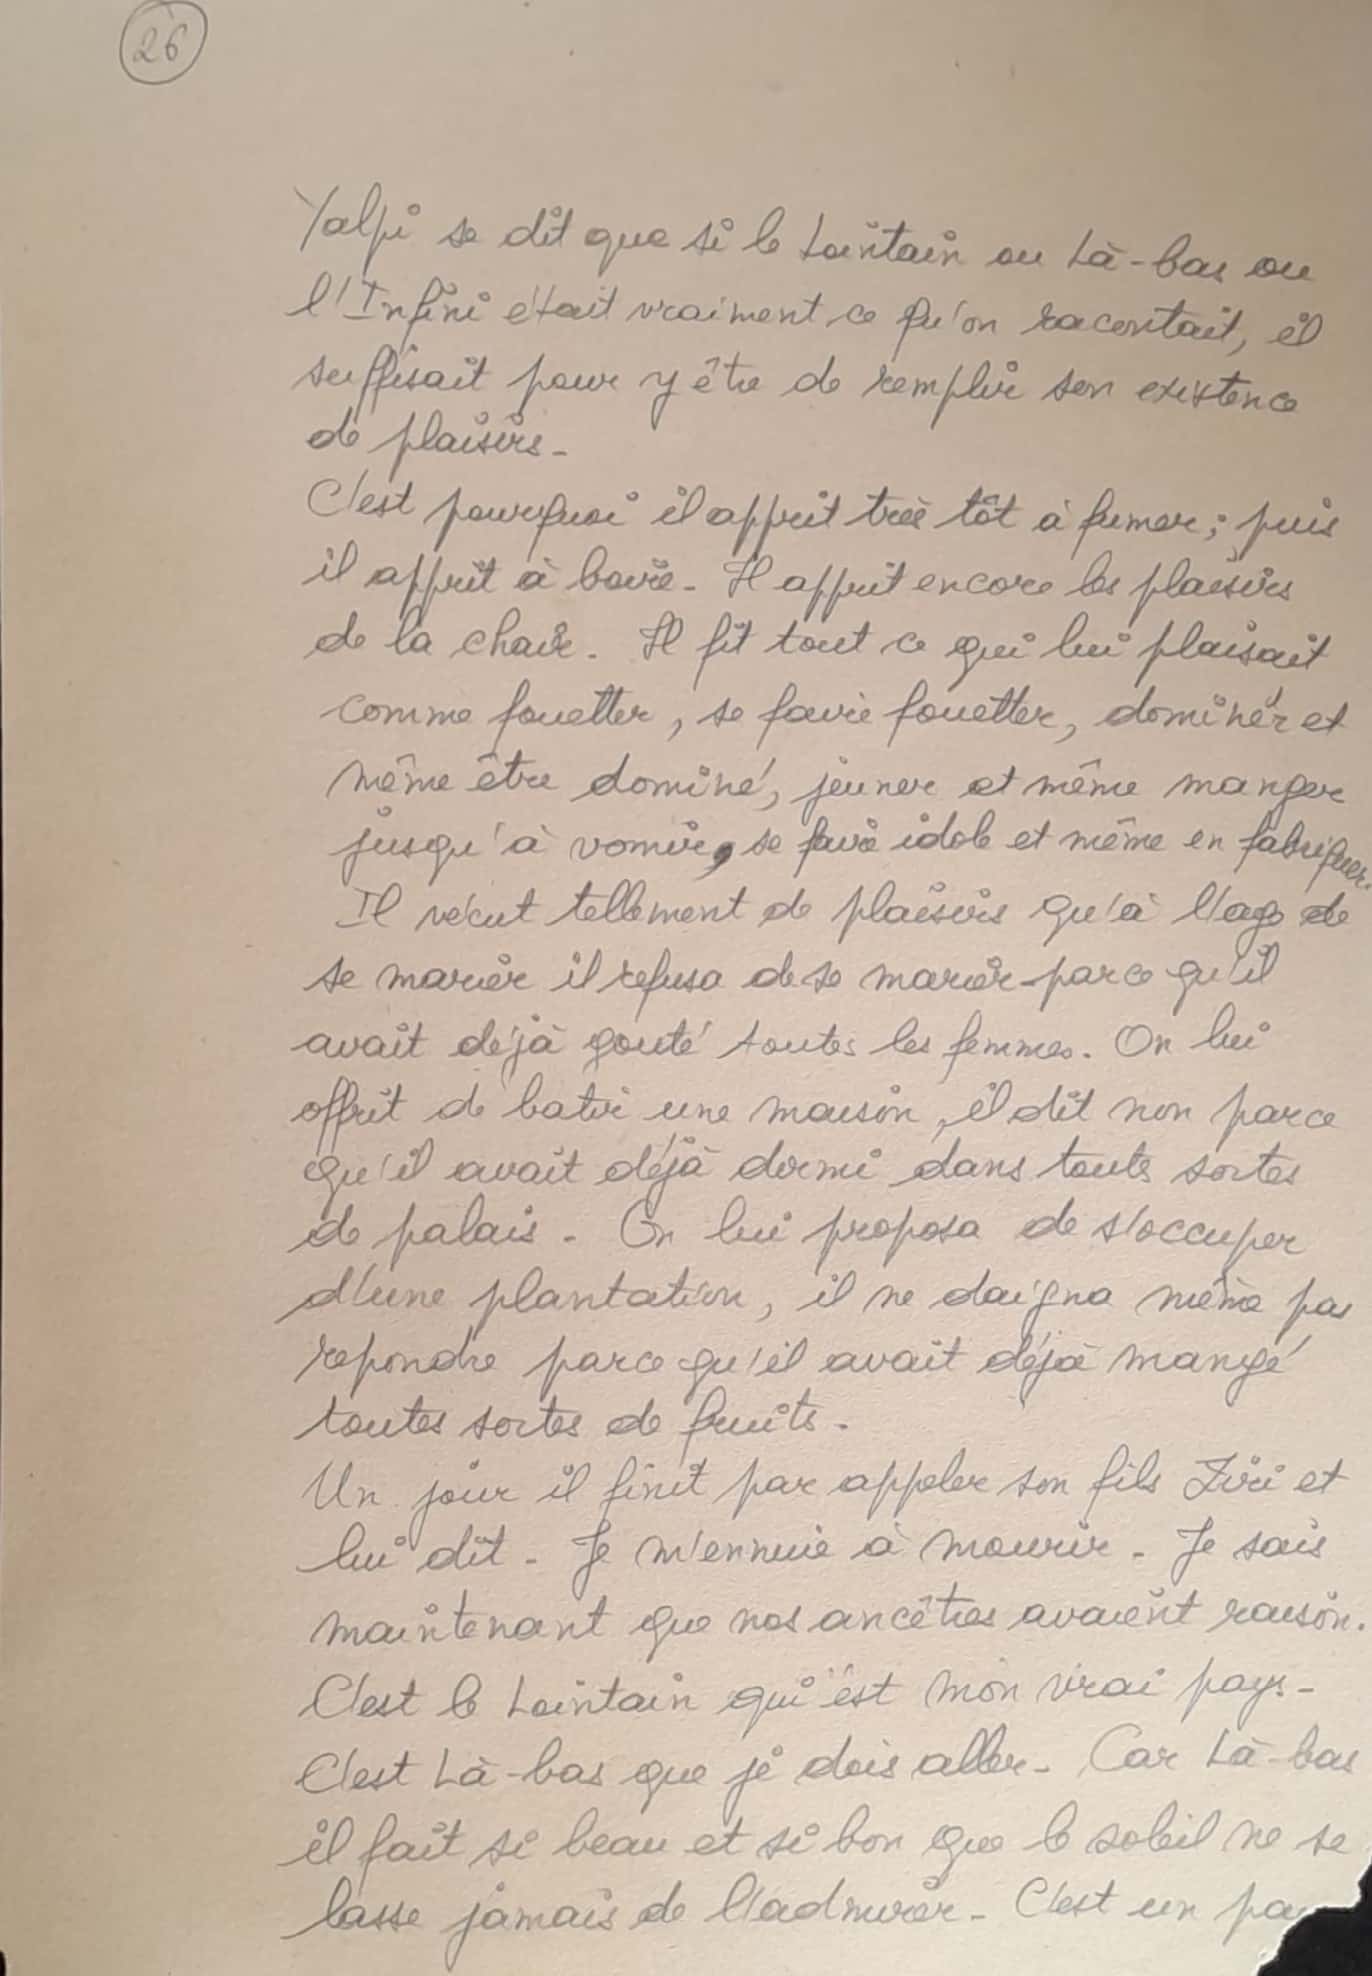 26
Yalpi se dit que si le Lointain ou Là-bas ou
l'Infini était vraiment ce qu'on racontait, il
suffisait pour y être de remplir son existence
de plaisirs.
C'est pourquoi il apprit très tôt à fumer ; puis
il apprit à boire. Il apprit encore les plaisirs
de la chair. Il fit tout ce qui lui plaisait
comme fouetter, se faire fouetter, dominer et
même être dominé, jeuner et même manger
jusqu'à vomir, se faire idole et même en fabriquer.
Il vécut tellement de plaisirs qu'à l'age de
se marier il refusa de se marier parce qu'il
avait déjà gouté toutes les femmes. On lui
offrit de batir une maison, il dit non parce
qu'il avait déjà dormi dans toutes sortes
de palais. On lui proposa de s'occuper
d'une plantation, il ne daigna même pas
repondre parce qu'il avait déjà mangé
toutes sortes de fruits.
Un jour il finit par appeler son fils et
lui dit. Je m'ennuie à mourir. Je sais
maintenant que nos ancêtres avaient raison.
C'est le Lointain qui est mon vrai pays.
C'est Là-bas que je dois aller. Car Là-bas
il fait si beau et si bon que le soleil ne se
lasse jamais de l'admirer. C'est un